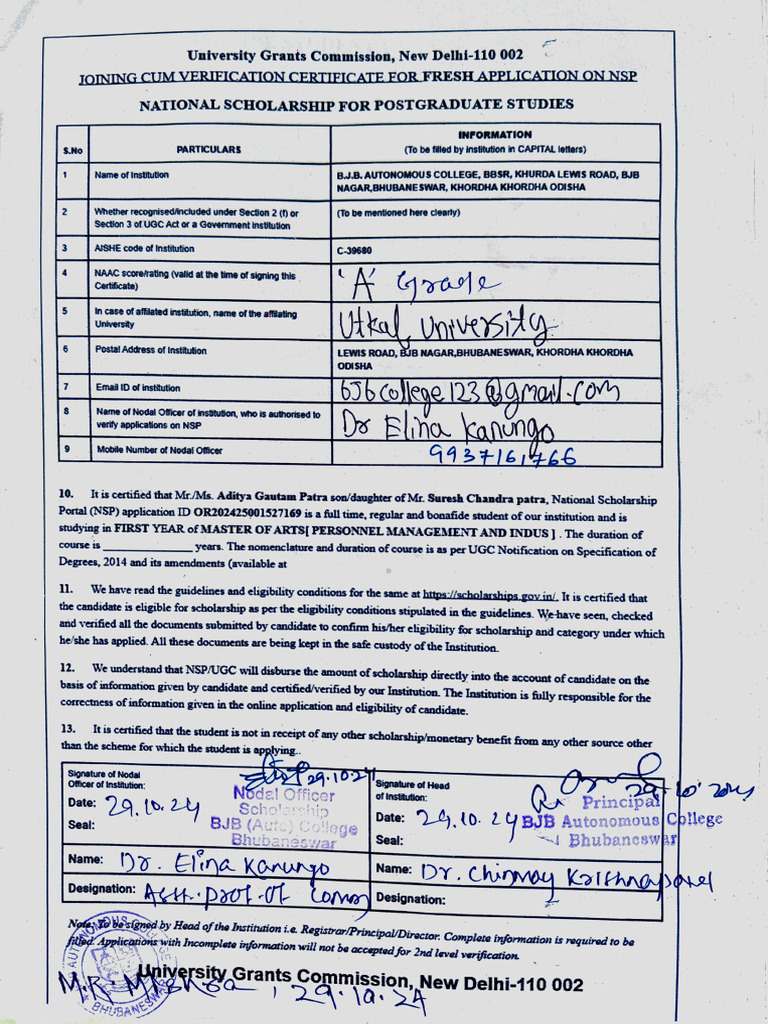 University Grants Commission, New Delhi-110 002
JOINING CUM VERIFICATION CERTIFICATE FOR FRESH APPLICATION ON NSP
NATIONAL SCHOLARSHIP FOR POSTGRADUATE STUDIES
S.No PARTICULARS INFORMATION
(To be filled by institution in CAPITAL letters)
1 Name of Institution B.J.B. AUTONOMOUS COLLEGE, BBSR, KHURDA LEWIS ROAD, BJB
NAGAR,BHUBANESWAR, KHORDHA KHORDHA ODISHA
2 Whether recognised/included under Section 2 (f) or (To be mentioned here clearly)
Section 3 of UGC Act or a Government institution
3 AISHE code of Institution C-39680
4 NAAC score/rating (valid at the time of signing this 'A' Grade
Certificate)
5 In case of affiliated institution, name of the affiliating Utkal University
University
6 Postal Address of Institution LEWIS ROAD, BJB NAGAR,BHUBANESWAR, KHORDHA KHORDHA
ODISHA
7 Email ID of institution bjbcollege123@gmail.com
8 Name of Nodal Officer of institution, who is authorised to Dr Elina Kanungo
verify applications on NSP
9 Mobile Number of Nodal Officer 9937161766
10. It is certified that Mr./Ms. Aditya Gautam Patra son/daughter of Mr. Suresh Chandra patra, National Scholarship
Portal (NSP) application ID OR202425001527169 is a full time, regular and bonafide student of our institution and is
studying in FIRST YEAR of MASTER OF ARTS[ PERSONNEL MANAGEMENT AND INDUS ] . The duration of
course is ______________ years. The nomenclature and duration of course is as per UGC Notification on Specification of
Degrees, 2014 and its amendments (available at
11. We have read the guidelines and eligibility conditions for the same at https://scholarships.gov.in/. It is certified that
the candidate is eligible for scholarship as per the eligibility conditions stipulated in the guidelines. We have seen, checked
and verified all the documents submitted by candidate to confirm his/her eligibility for scholarship and category under which
he/she has applied. All these documents are being kept in the safe custody of the Institution.
12. We understand that NSP/UGC will disburse the amount of scholarship directly into the account of candidate on the
basis of information given by candidate and certified/verified by our Institution. The Institution is fully responsible for the
correctness of information given in the online application and eligibility of candidate.
13. It is certified that the student is not in receipt of any other scholarship/monetary benefit from any other source other
than the scheme for which the student is applying..
Signature of Nodal 29.10.24
Officer of Institution:
Nodal Officer
Date: 29.10.24 Scholarship
Seal: BJB (Auto) College
Bhubaneswar
Name: Dr. Elina Kanungo
Designation: Asst. prof. of Comm
Signature of Head 29.10.2024
of Institution:
Principal
Date: 29.10.24 BJB Autonomous College
Seal: Bhubaneswar
Name: Dr. Chinmay
Designation:
Note: To be signed by Head of the Institution i.e. Registrar/Principal/Director. Complete information is required to be
filled. Applications with Incomplete information will not be accepted for 2nd level verification.
University Grants Commission, New Delhi-110 002
29.10.24
AUTONOMOUS COLLEGE
BHUBANESWAR